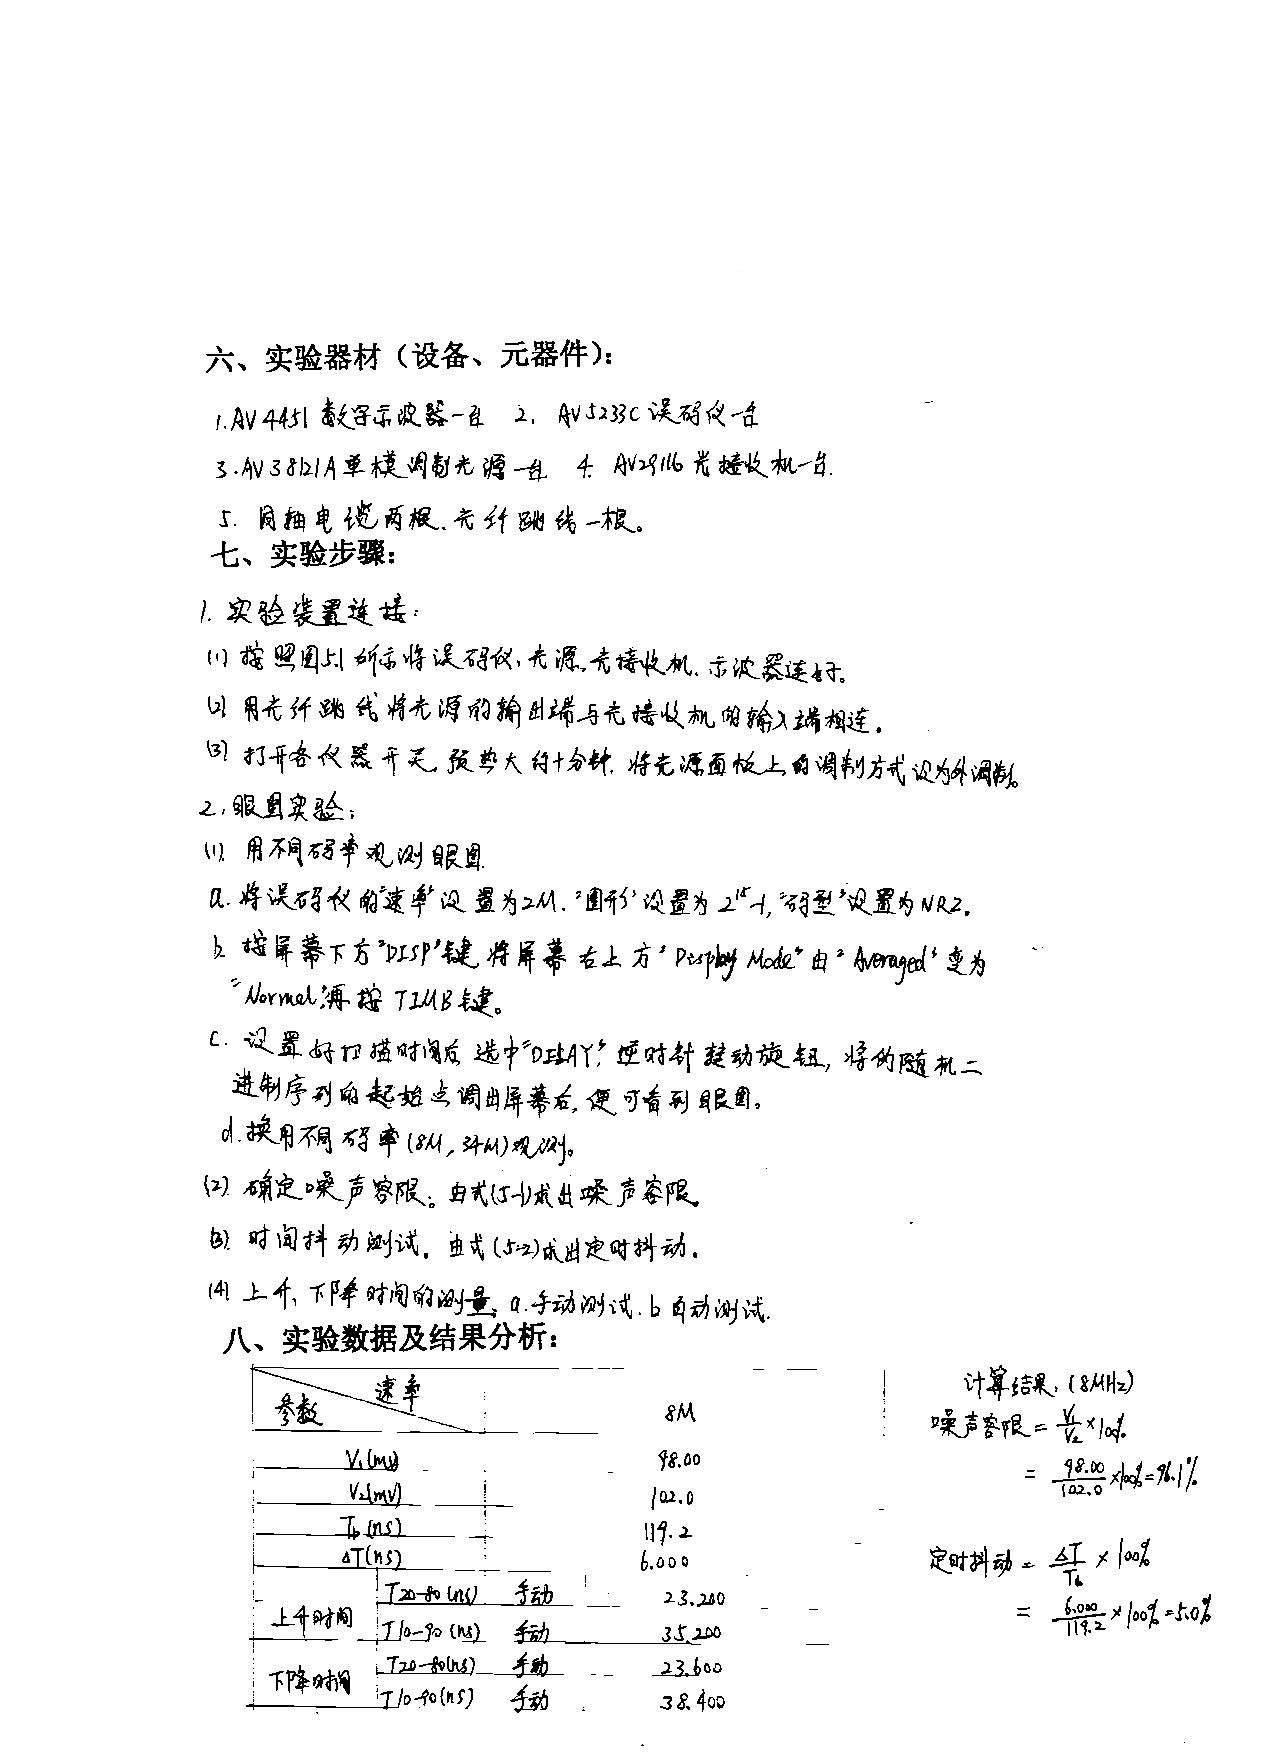 六、实验器材（设备、元器件）：
1.AV4451 数字示波器一台 2. AV5233C 误码仪一台
3.AV38121A 单模调制光源一台 4. AV29116 光接收机一台.
5. 同轴电缆两根、光纤跳线一根。
七、实验步骤：
1. 实验装置连接：
(1) 按照图5.1所示将误码仪、光源、光接收机、示波器连好。
(2) 用光纤跳线将光源的输出端与光接收机的输入端相连。
(3) 打开各仪器开关,预热大约十分钟,将光源面板上的调制方式设为外调制。
2.眼图实验：
(1) 用不同码率观测眼图.
a.将误码仪的"速率"设置为2M."图形"设置为2¹⁵-1,"码型"设置为NRZ。
b.按屏幕下方"DISP"键,将屏幕右上方"Display Mode"由"Averaged"变为
"Normal",再按TIMB键。
c. 设置好扫描时间后,选中"DELAY",逆时针转动旋钮,将伪随机二
进制序列的起始点调出屏幕后,便可看到眼图。
d.换用不同码率(8M,34M)观测。
(2) 确定噪声容限。由式(5-1)求出噪声容限。
(3) 时间抖动测试。由式(5-2)求出定时抖动。
(4) 上升、下降时间的测量. a.手动测试. b 自动测试.
八、实验数据及结果分析：
速率
参数
8M
V₁(mV) 98.00
V₂(mV) 102.0
Tb(ns) 119.2
ΔT(ns) 6.000
上升时间 T20-80(ns) 手动 23.200
T10-90(ns) 手动 35.200
下降时间 T20-80(ns) 手动 23.600
T10-90(ns) 手动 38.400
计算结果：(8MHz)
噪声容限=V₁/V₂×100%
=98.00/102.0×100%=96.1%
定时抖动=ΔT/Tb×100%
=6.000/119.2×100%=5.0%